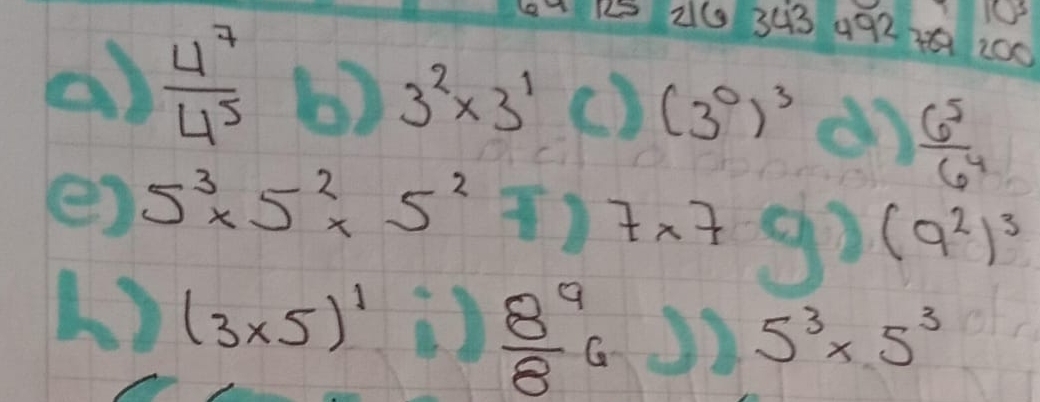 64 125 216 343 492 729 200
a) 4⁷/4⁵ b) 3² × 3¹ c) (3⁰)³ d) 6⁵/6⁴
e) 5³ × 5² × 5² f) 7 × 7 g) (9²)³
h) (3 × 5)¹ i) 8⁹/8⁶ j) 5³ × 5³